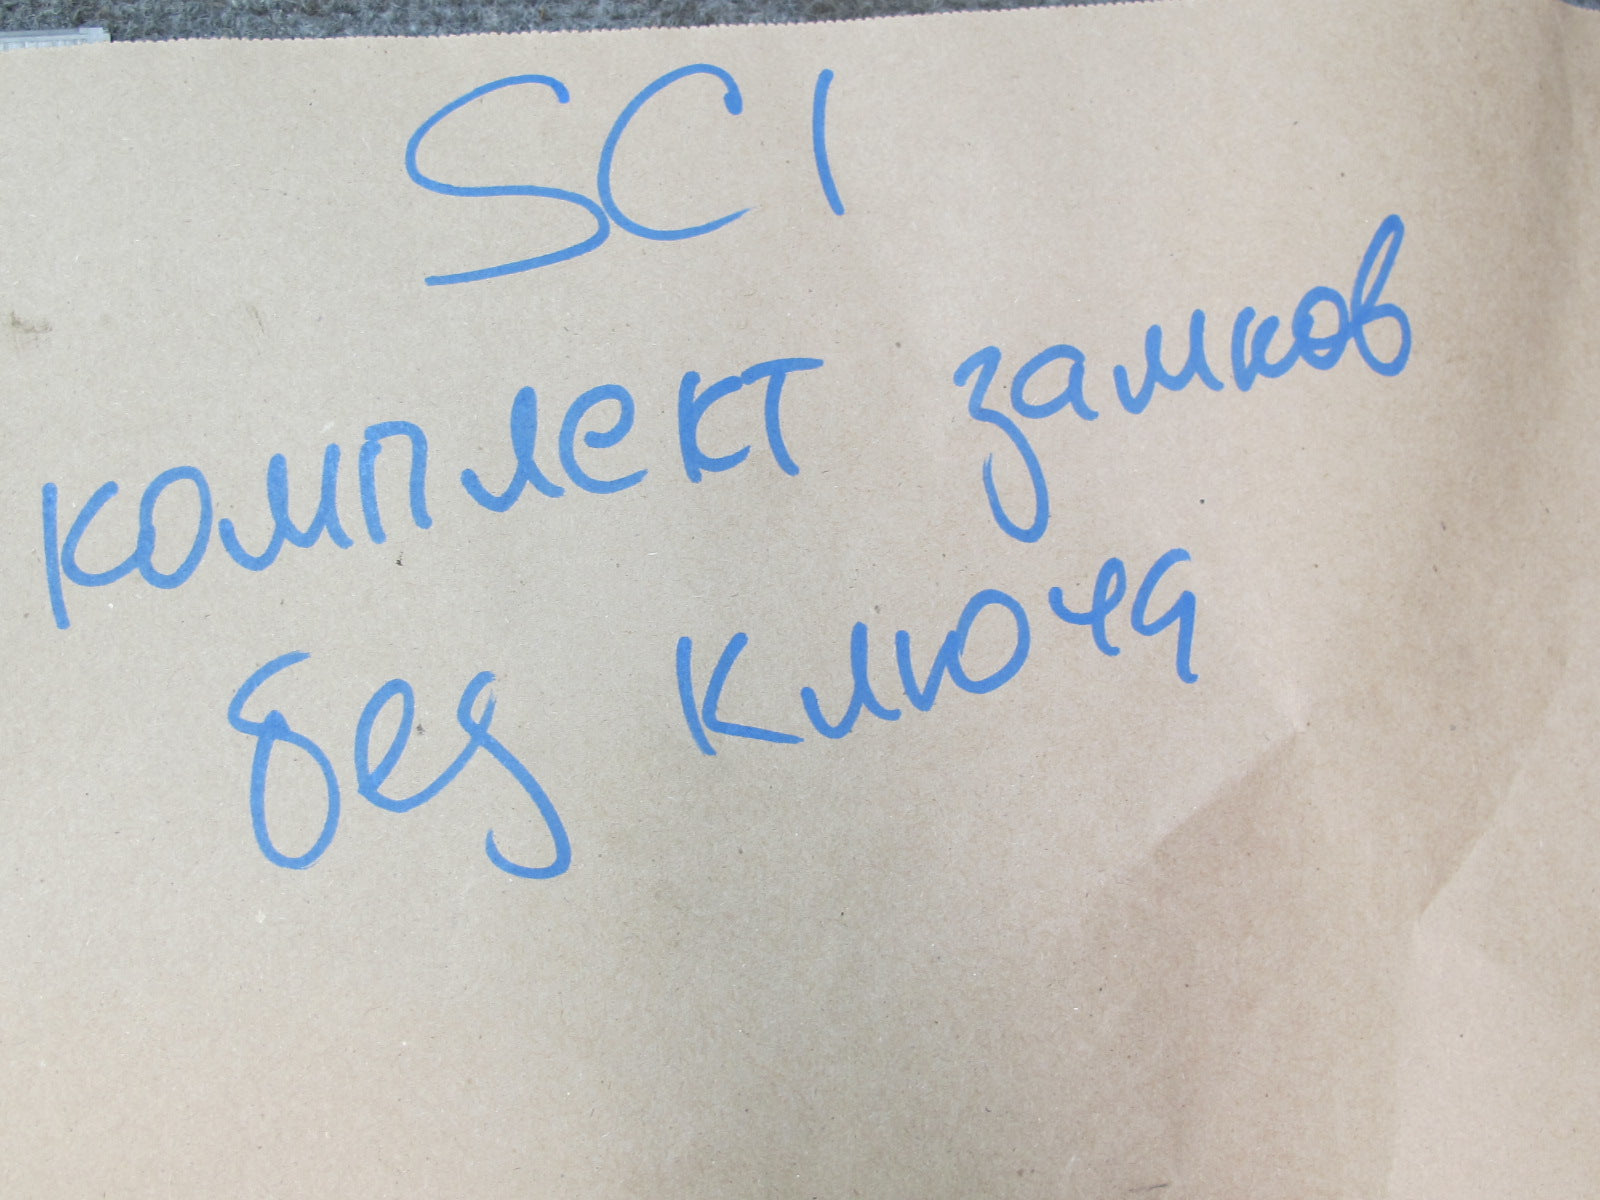 SCI
комплект замков
без ключа